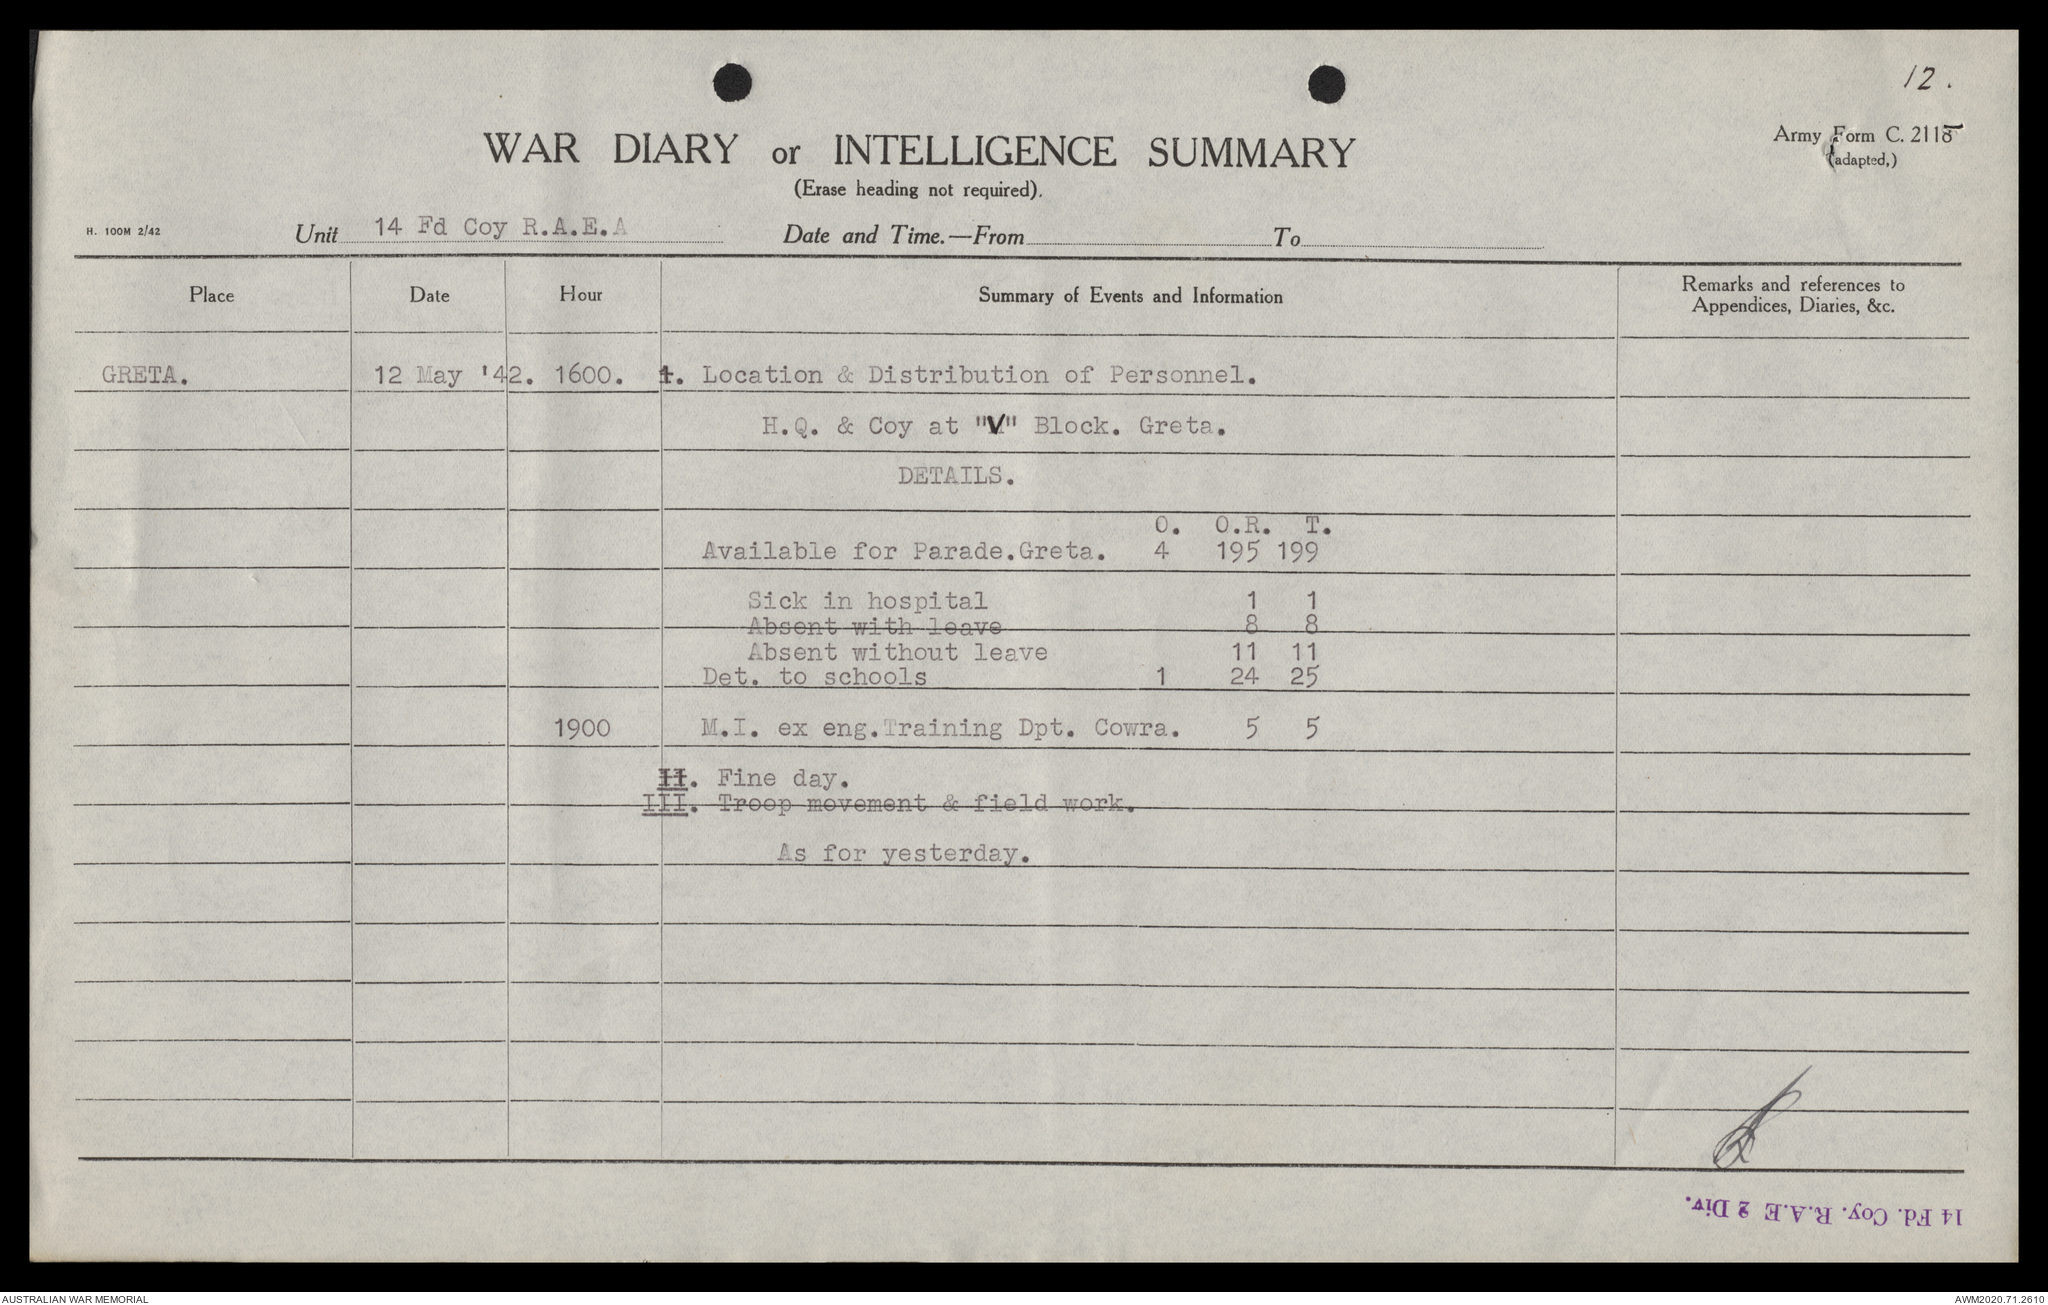 12.
Army Form C. 2118
(adapted,)
WAR DIARY or INTELLIGENCE SUMMARY
(Erase heading not required).
H. 100M 2/42
Unit 14 Fd Coy R.A.E.A Date and Time.—From To
Place Date Hour Summary of Events and Information Remarks and references to
Appendices, Diaries, &c.
GRETA. 12 May '42. 1600. 1. Location & Distribution of Personnel.
H.Q. & Coy at "V" Block. Greta.
DETAILS.
O. O.R. T.
Available for Parade.Greta. 4 195 199
Sick in hospital 1 1
Absent with leave 8 8
Absent without leave 11 11
Det. to schools 1 24 25
1900 M.I. ex eng.Training Dpt. Cowra. 5 5
II. Fine day.
III. Troop movement & field work.
As for yesterday.
14 Fd. Coy. R.A.E 2 Div.
AUSTRALIAN WAR MEMORIAL AWM2020.71.2610